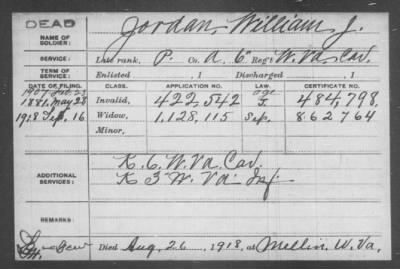 DEAD
NAME OF SOLDIER: Jordan, William J.
SERVICE: Late rank, P. Co. A, 6" Reg't W. Va. Cav.
TERM OF SERVICE: Enlisted , 1 Discharged , 1
DATE OF FILING. CLASS. APPLICATION NO. LAW. CERTIFICATE NO.
1881, May 28 Invalid, 422,542 484,798,
1918 Sept. 16 Widow, 1,128,115 Sep. 862764
Minor,
ADDITIONAL SERVICES: K. 6 W. Va. Cav.
K 3 W. Va. Inf.
REMARKS:
Died Aug. 26, 1918, at Mellin, W. Va.